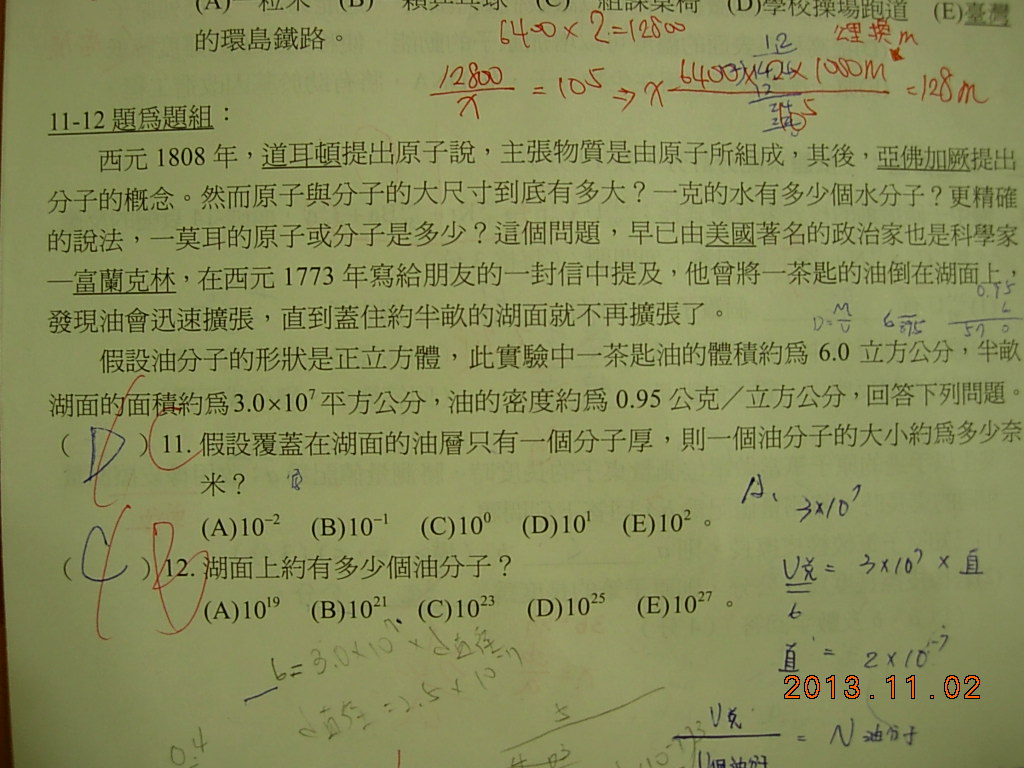 (A)一粒米 (B)一顆乒乓球 (C)一組課桌椅 (D)學校操場跑道 (E)臺灣
的環島鐵路。
6400×2=12800
公里換m
12800/x = 10⁵ ⇒ x
=128m
11-12題為題組：
西元 1808 年，道耳頓提出原子說，主張物質是由原子所組成，其後，亞佛加厥提出
分子的概念。然而原子與分子的大尺寸到底有多大？一克的水有多少個水分子？更精確
的說法，一莫耳的原子或分子是多少？這個問題，早已由美國著名的政治家也是科學家
—富蘭克林，在西元 1773 年寫給朋友的一封信中提及，他曾將一茶匙的油倒在湖面上，
發現油會迅速擴張，直到蓋住約半畝的湖面就不再擴張了。
D=M/V
0.95
6
570
假設油分子的形狀是正立方體，此實驗中一茶匙油的體積約為 6.0 立方公分，半畝
湖面的面積約為3.0×10⁷平方公分，油的密度約為 0.95 公克／立方公分，回答下列問題。
( D ) C 11. 假設覆蓋在湖面的油層只有一個分子厚，則一個油分子的大小約為多少奈
米？
A.
3×10⁷
(A)10⁻² (B)10⁻¹ (C)10⁰ (D)10¹ (E)10²。
( C ) B 12. 湖面上約有多少個油分子？
V克 = 3×10⁷ × 直
6
(A)10¹⁹ (B)10²¹ (C)10²³ (D)10²⁵ (E)10²⁷。
6=3.0×10⁷×d直徑
直 = 2×10⁻⁷
d直徑=2.5×10
2013.11.02
5
0.4
V克
= N油分子